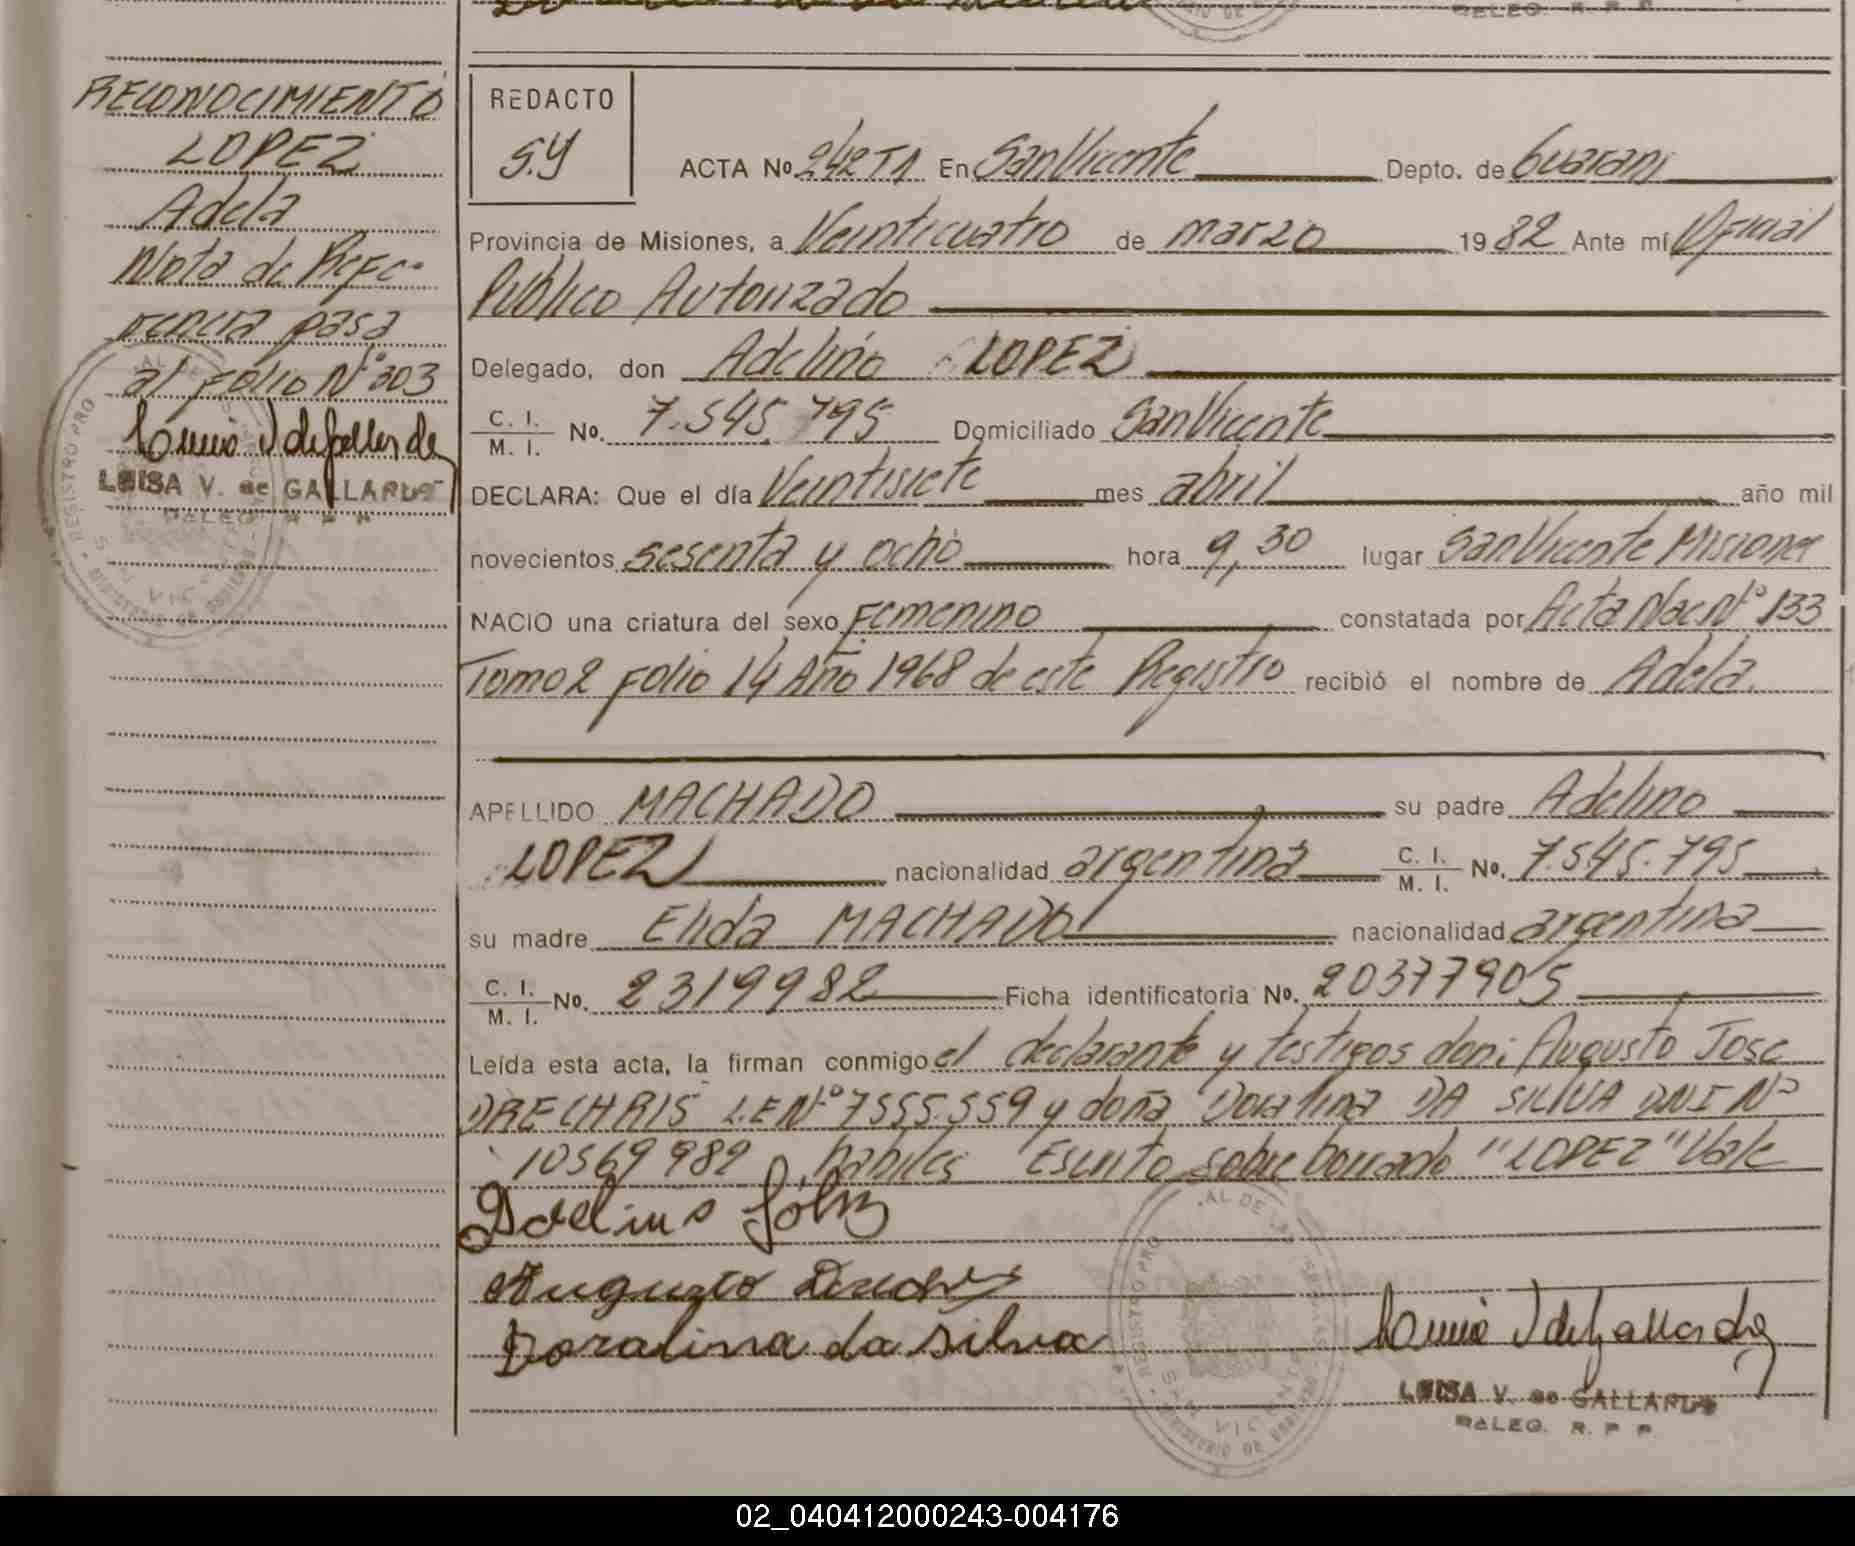 RECONOCIMIENTO
LOPEZ
Adela
Nota de Refe-
rencia pasa
al folio Nº 203
LUISA V. de GALLARDO
DELEG. R. P. P.
REDACTO
S.Y
ACTA No. 242 T1 En San Vicente Depto. de Guarani
Provincia de Misiones, a Veinticuatro de marzo 1982 Ante mí Oficial
Publico Autorizado
Delegado, don Adelino LOPEZ
C. I. / M. I. No. 7.545.795 Domiciliado San Vicente
DECLARA: Que el día Veintisiete mes abril año mil
novecientos sesenta y ocho hora 9,30 lugar San Vicente Misiones
NACIO una criatura del sexo Femenino constatada por Acta Nac Nº 133
Tomo 2 folio 14 Año 1968 de este Registro recibió el nombre de Adela.
APELLIDO MACHADO su padre Adelino
LOPEZ nacionalidad argentina C. I. / M. I. No. 7.545.795
su madre Elida MACHADO nacionalidad argentina
C. I. / M. I. No. 2319982 Ficha identificatoria No. 20377905
Leída esta acta, la firman conmigo el declarante y testigos don: Augusto Jose
DRECHRIS L.E Nº 7555.559 y doña Doralina DA SILVA DNI Nº
10569989 habiles Escrito sobre borrado "LOPEZ" Vale
Adelino
Augusto
Doralina da Silva
SAN VICENTE
LUISA V. de GALLARDO
DELEG. R. P. P.
02_040412000243-004176